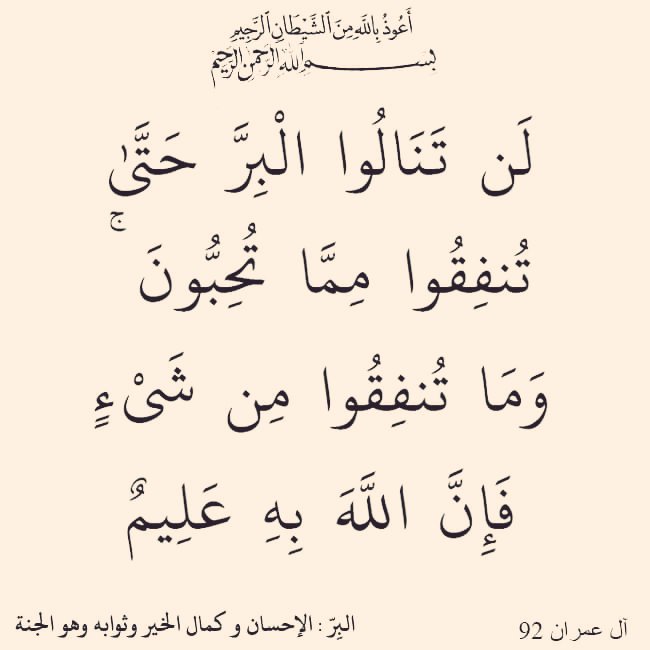 أَعُوذُ بِاللَّهِ مِنَ الشَّيْطَانِ الرَّجِيمِ
بسم الله الرحمن الرحيم
لَن تَنَالُوا الْبِرَّ حَتَّىٰ
تُنفِقُوا مِمَّا تُحِبُّونَ ۚ
وَمَا تُنفِقُوا مِن شَىْءٍ
فَإِنَّ اللَّهَ بِهِ عَلِيمٌ
آل عمران 92
البِرّ : الإحسان و كمال الخير وثوابه وهو الجنة